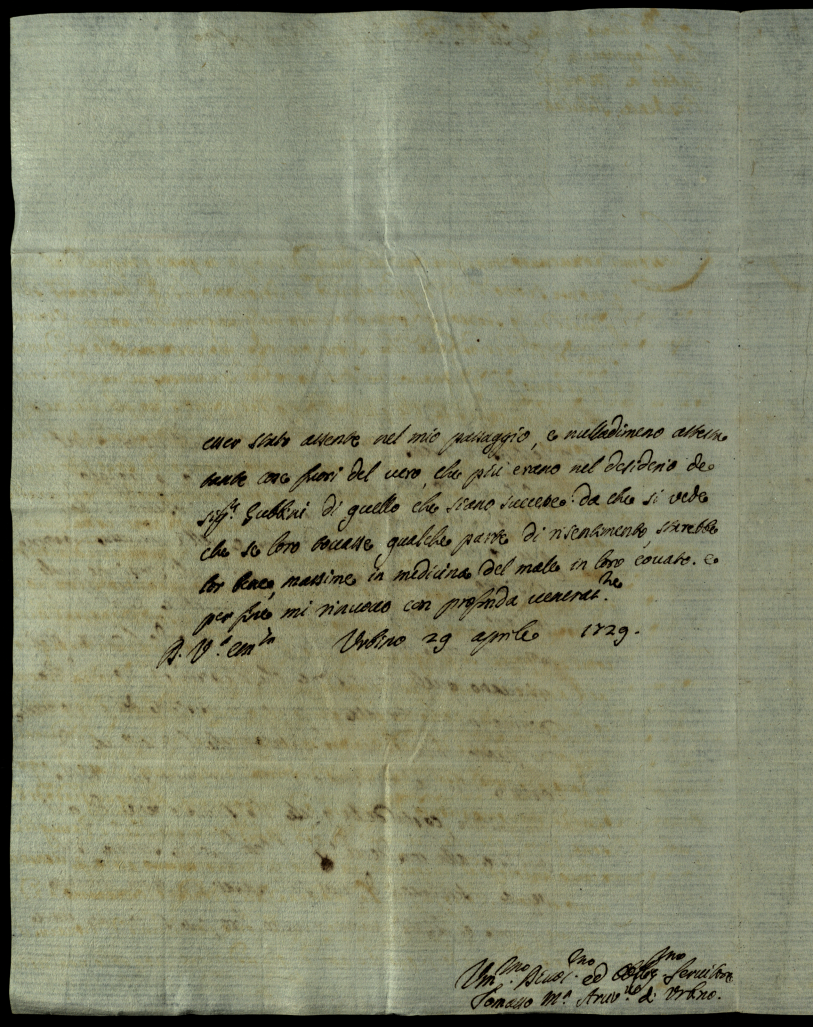 esser stato assente nel mio passaggio, e nulladimeno attesta
tante cose fuori del vero, che più erano nel desiderio de
Sigri. Gubbini di quello che siano successe. da che si vede
che se loro toccasse qualche parte di risentimento, starebbe
lor bene, massime in medicina del male in loro covato. e
per fine mi rinuovo con profonda venerat.ne
D. V.a Em.za Urbino 29 aprile 1729.
Um.mo Divot.mo ed Obblig.mo Servitore
Tomasso M.a Arciv.o di Urbino.